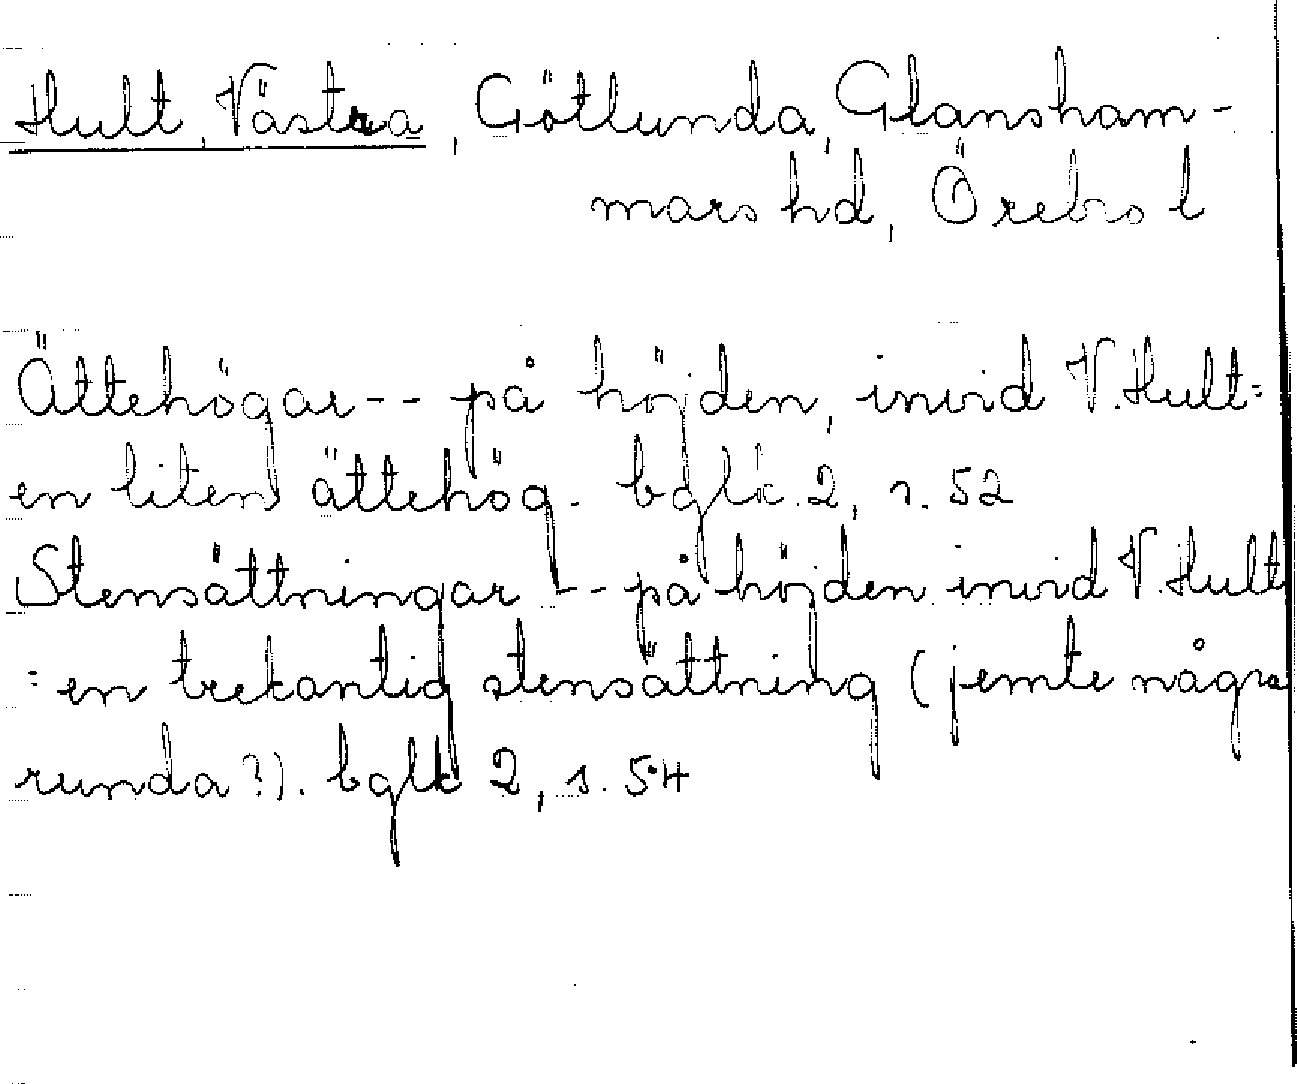 Hult, Västra, Götlunda, Glansham-
mars hd, Örebro l
Ättehögar-- på höjden, invid V. Hult=
en liten ättehög. bglk. 2, s. 52
Stensättningar -- på höjden invid V. Hult
= en trekantig stensättning (jemte några
runda?). bglk 2, s. 54